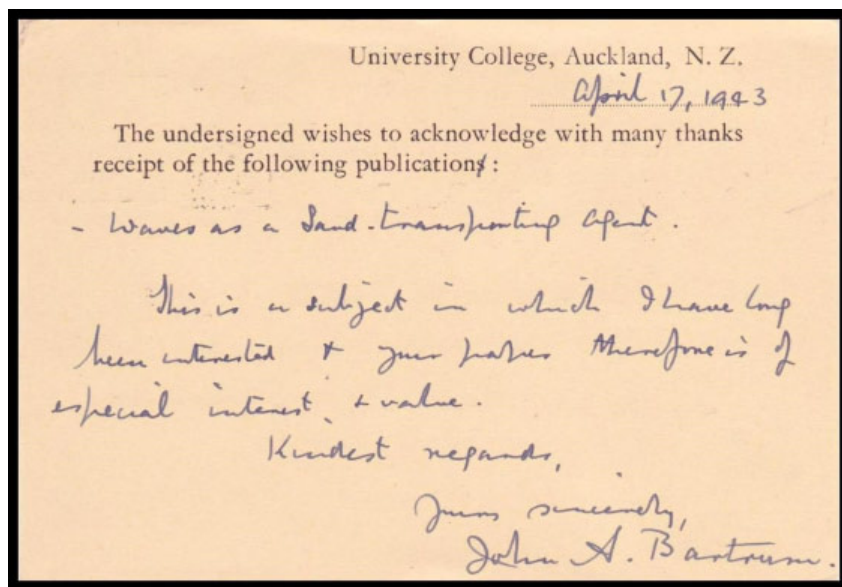 University College, Auckland, N. Z.
April 17, 1943
The undersigned wishes to acknowledge with many thanks
receipt of the following publication:
- Waves as a Sand-transporting agent.
This is a subject in which I have long
been interested & your paper therefore is of
especial interest & value.
Kindest regards,
Yours sincerely,
John A. Bartrum.